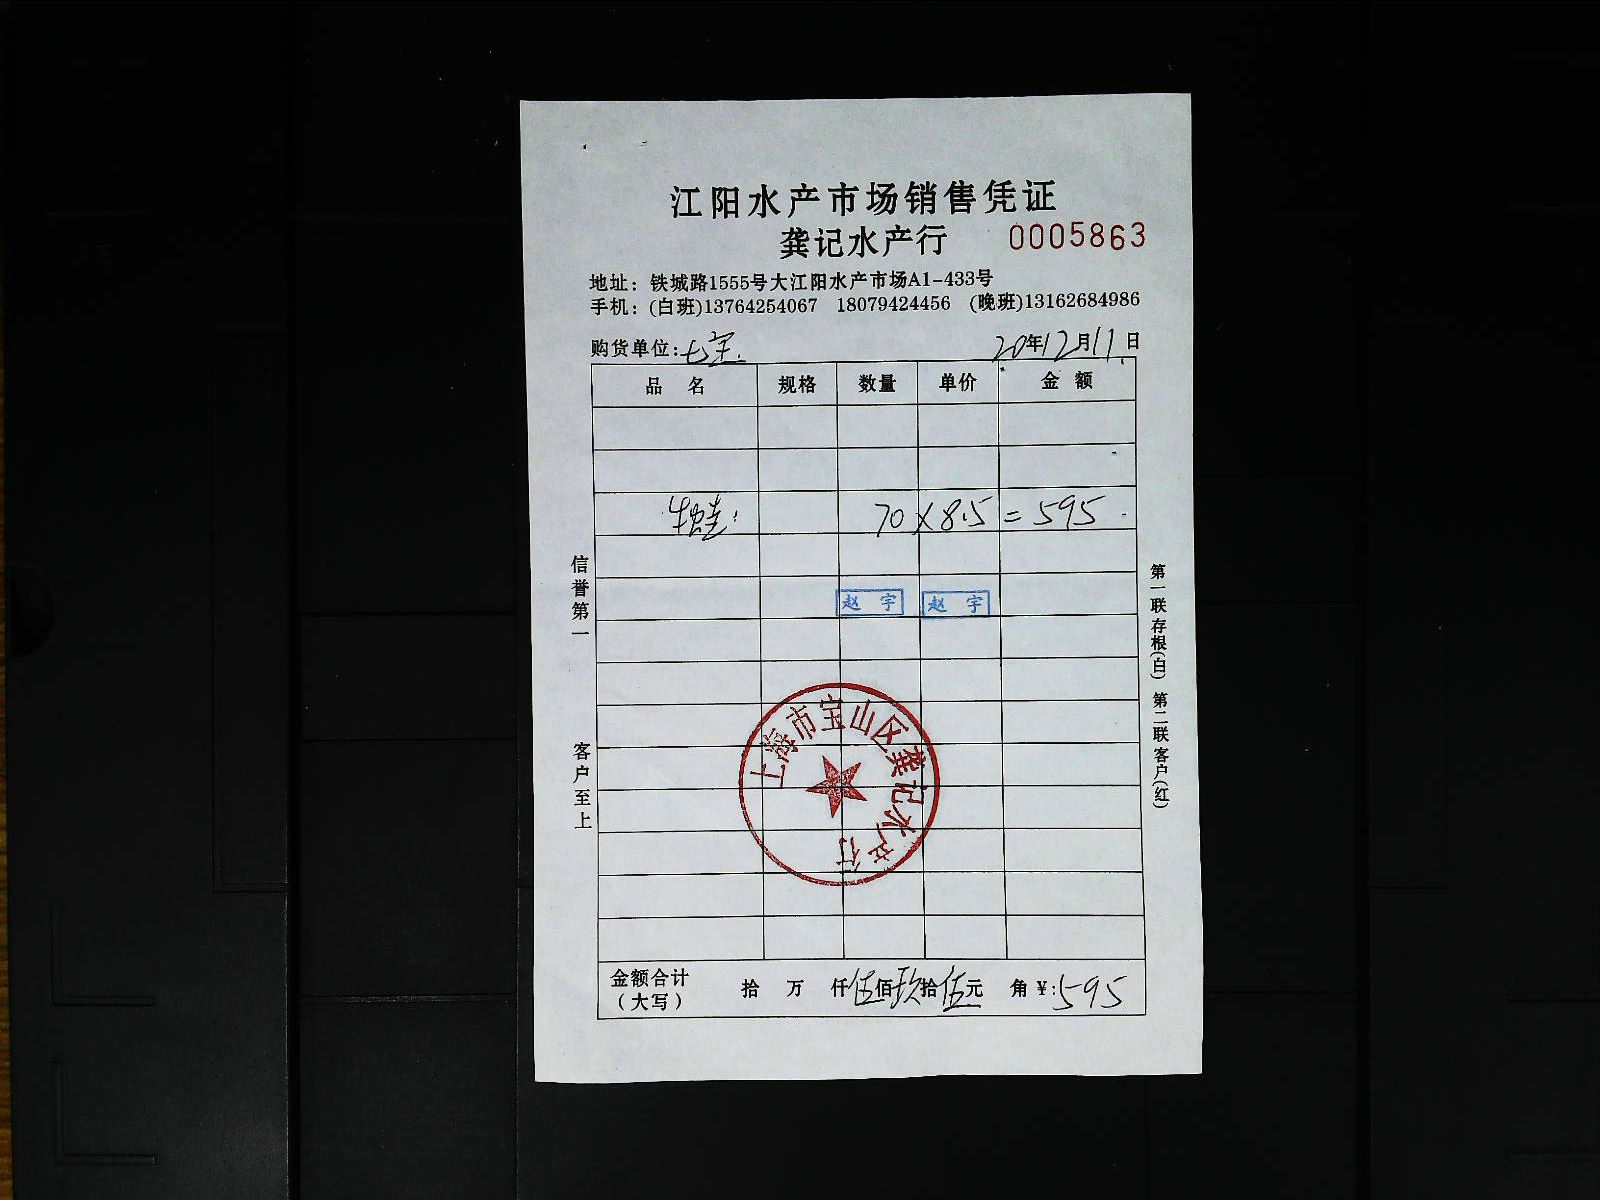 江阳水产市场销售凭证
龚记水产行 0005863
地址：铁城路1555号大江阳水产市场A1-433号
手机：(白班)13764254067 18079424456 (晚班)13162684986
购货单位：七宝 20年12月11日
品名 规格 数量 单价 金额
牛蛙 70×8.5=595
赵宇 赵宇
信誉第一 客户至上
第一联存根(白) 第二联客户(红)
上海市宝山区龚记水产行
金额合计 拾 万 仟伍佰玖拾伍元 角 ¥:595
（大写）